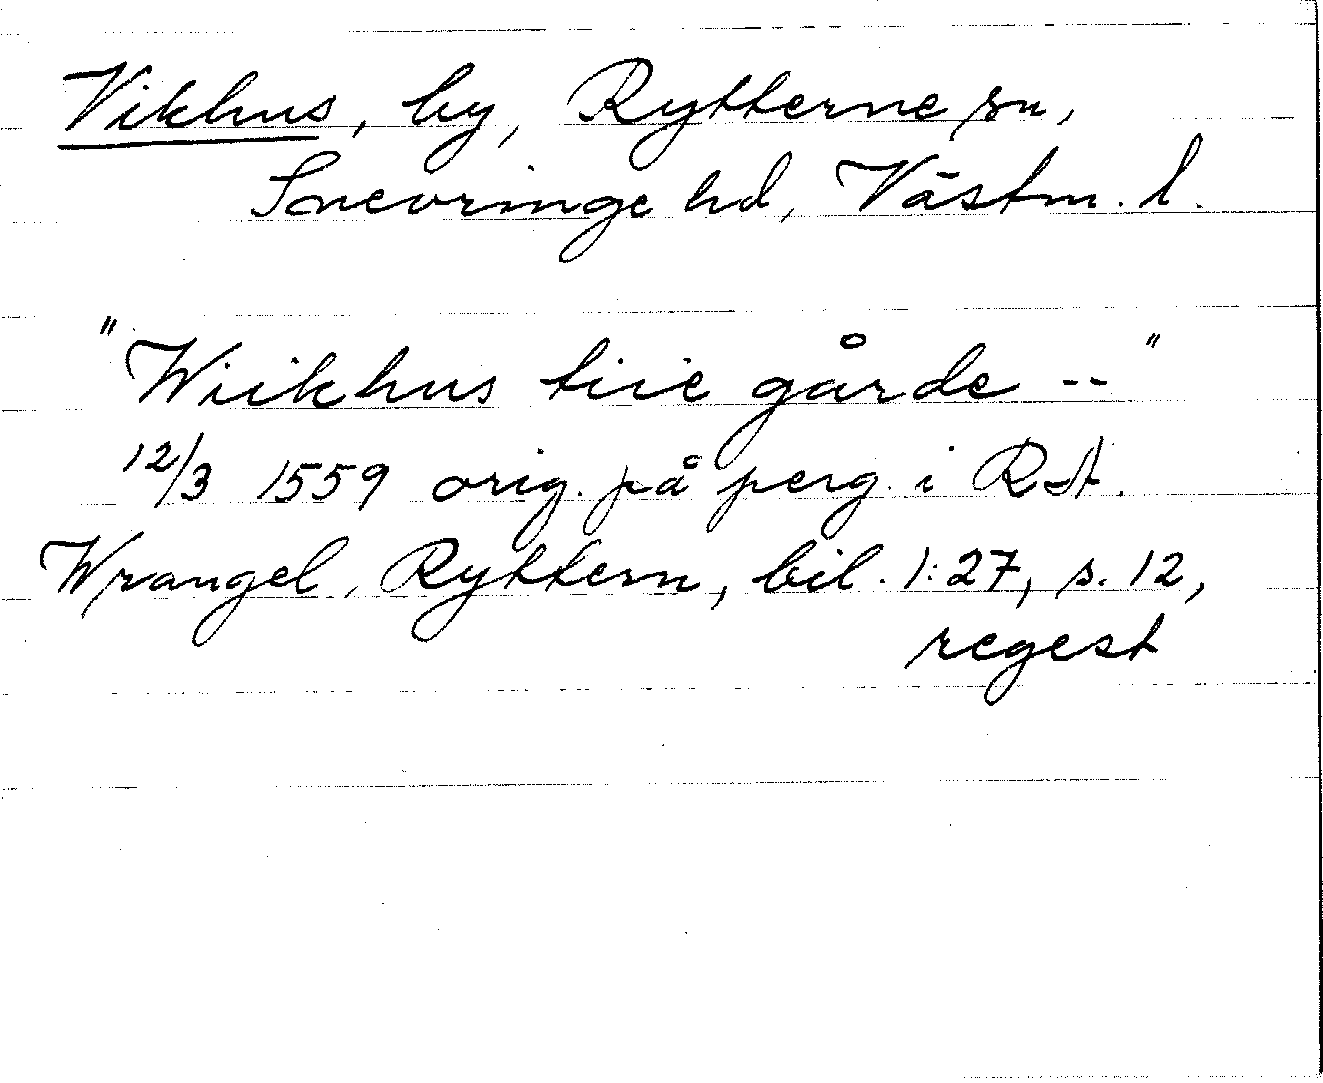 Vikhus, by, Rytterne sn,
Snevringe hd, Västm. l.
"Wiikhus tiie gårde --"
12/3 1559 orig. på perg. i RA.
Wrangel, Ryttern, bil. 1:27, s. 12,
regest